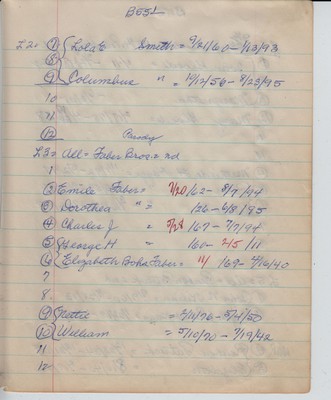 B S S L
L2= ① Lola E Smith = 9/21/60 - 1/13/93
⑧
⑨ Columbus " = 10/12/56 - 8/23/95
10
11
⑫
L3= All = Faber Bros = nd
1
② Emile Faber = 7/20/62 - 8/7/44
③ Dorothea " = /26 - 6/8/95
④ Charles J " 5/28/67 - 7/7/94
⑤ George H " 160 - 2/5/11
⑥ Elizabeth Faber = 11/ /69 - 7/16/40
7
8
⑨ Nettie = 2/11/76 - 5/4/50
⑩ William = 5/10/70 - 7/19/42
11
12